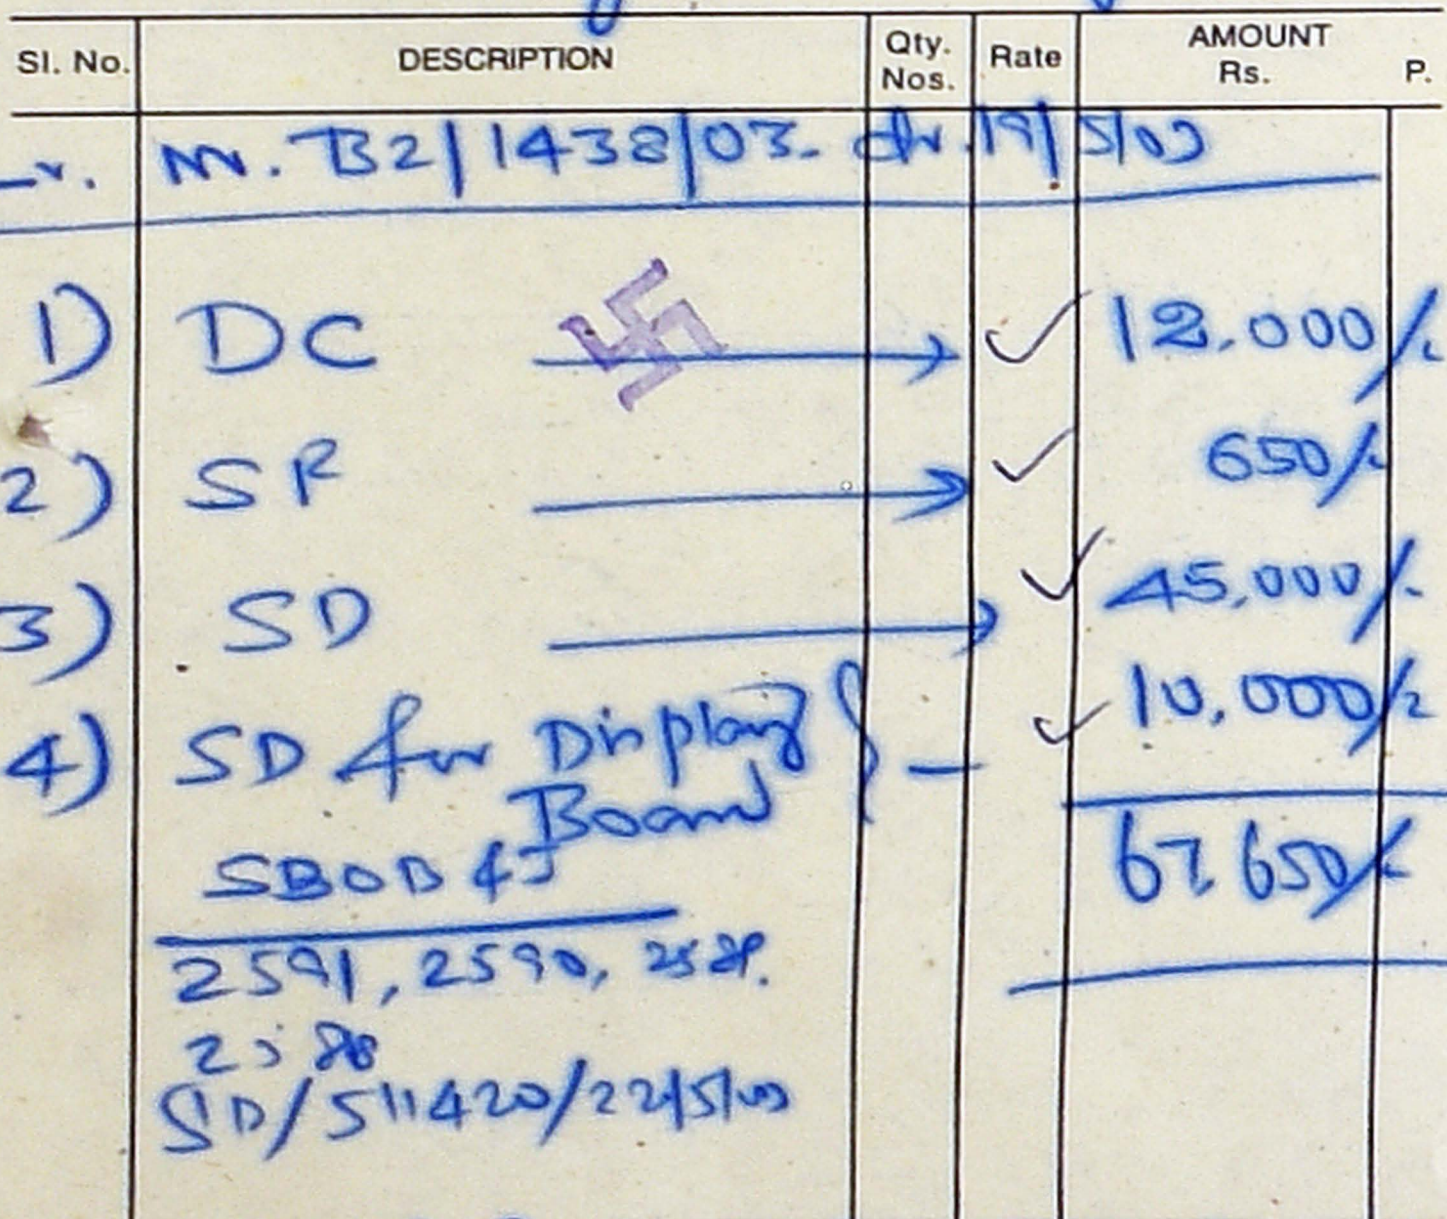 Sl. No. DESCRIPTION Qty. Nos. Rate AMOUNT Rs. P.
Nr. B2/1438/03. dt. 19/5/03
1) DC 12.000/-
2) SF 650/-
3) SD 45,000/-
4) SD for Display 10,000/-
Board
67.650/-
2591, 2590, 2589.
2588
SD/511420/22/5/03